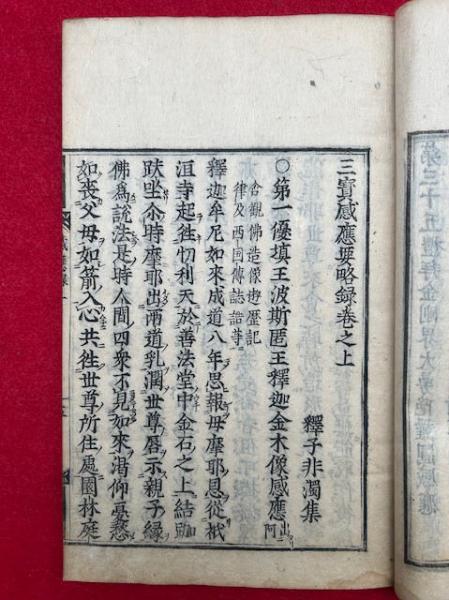 三寶感應要略錄卷之上
釋子非濁集
○第一優填王波斯匿王釋迦金木像感應出阿
含觀佛造像遊歷記
律及西国傳誌誥等
釋迦牟尼如來成道八年思報母摩耶恩從祇
洹寺起往忉利天於善法堂中金石之上結跏
趺坐尒時摩耶出兩道乳潤世尊唇示親子緣
佛為說法是時人間四衆不見如來渴仰哀愁
如喪父母如箭入心共往世尊所住處園林庭
第三十五禮拜金剛界大
感應